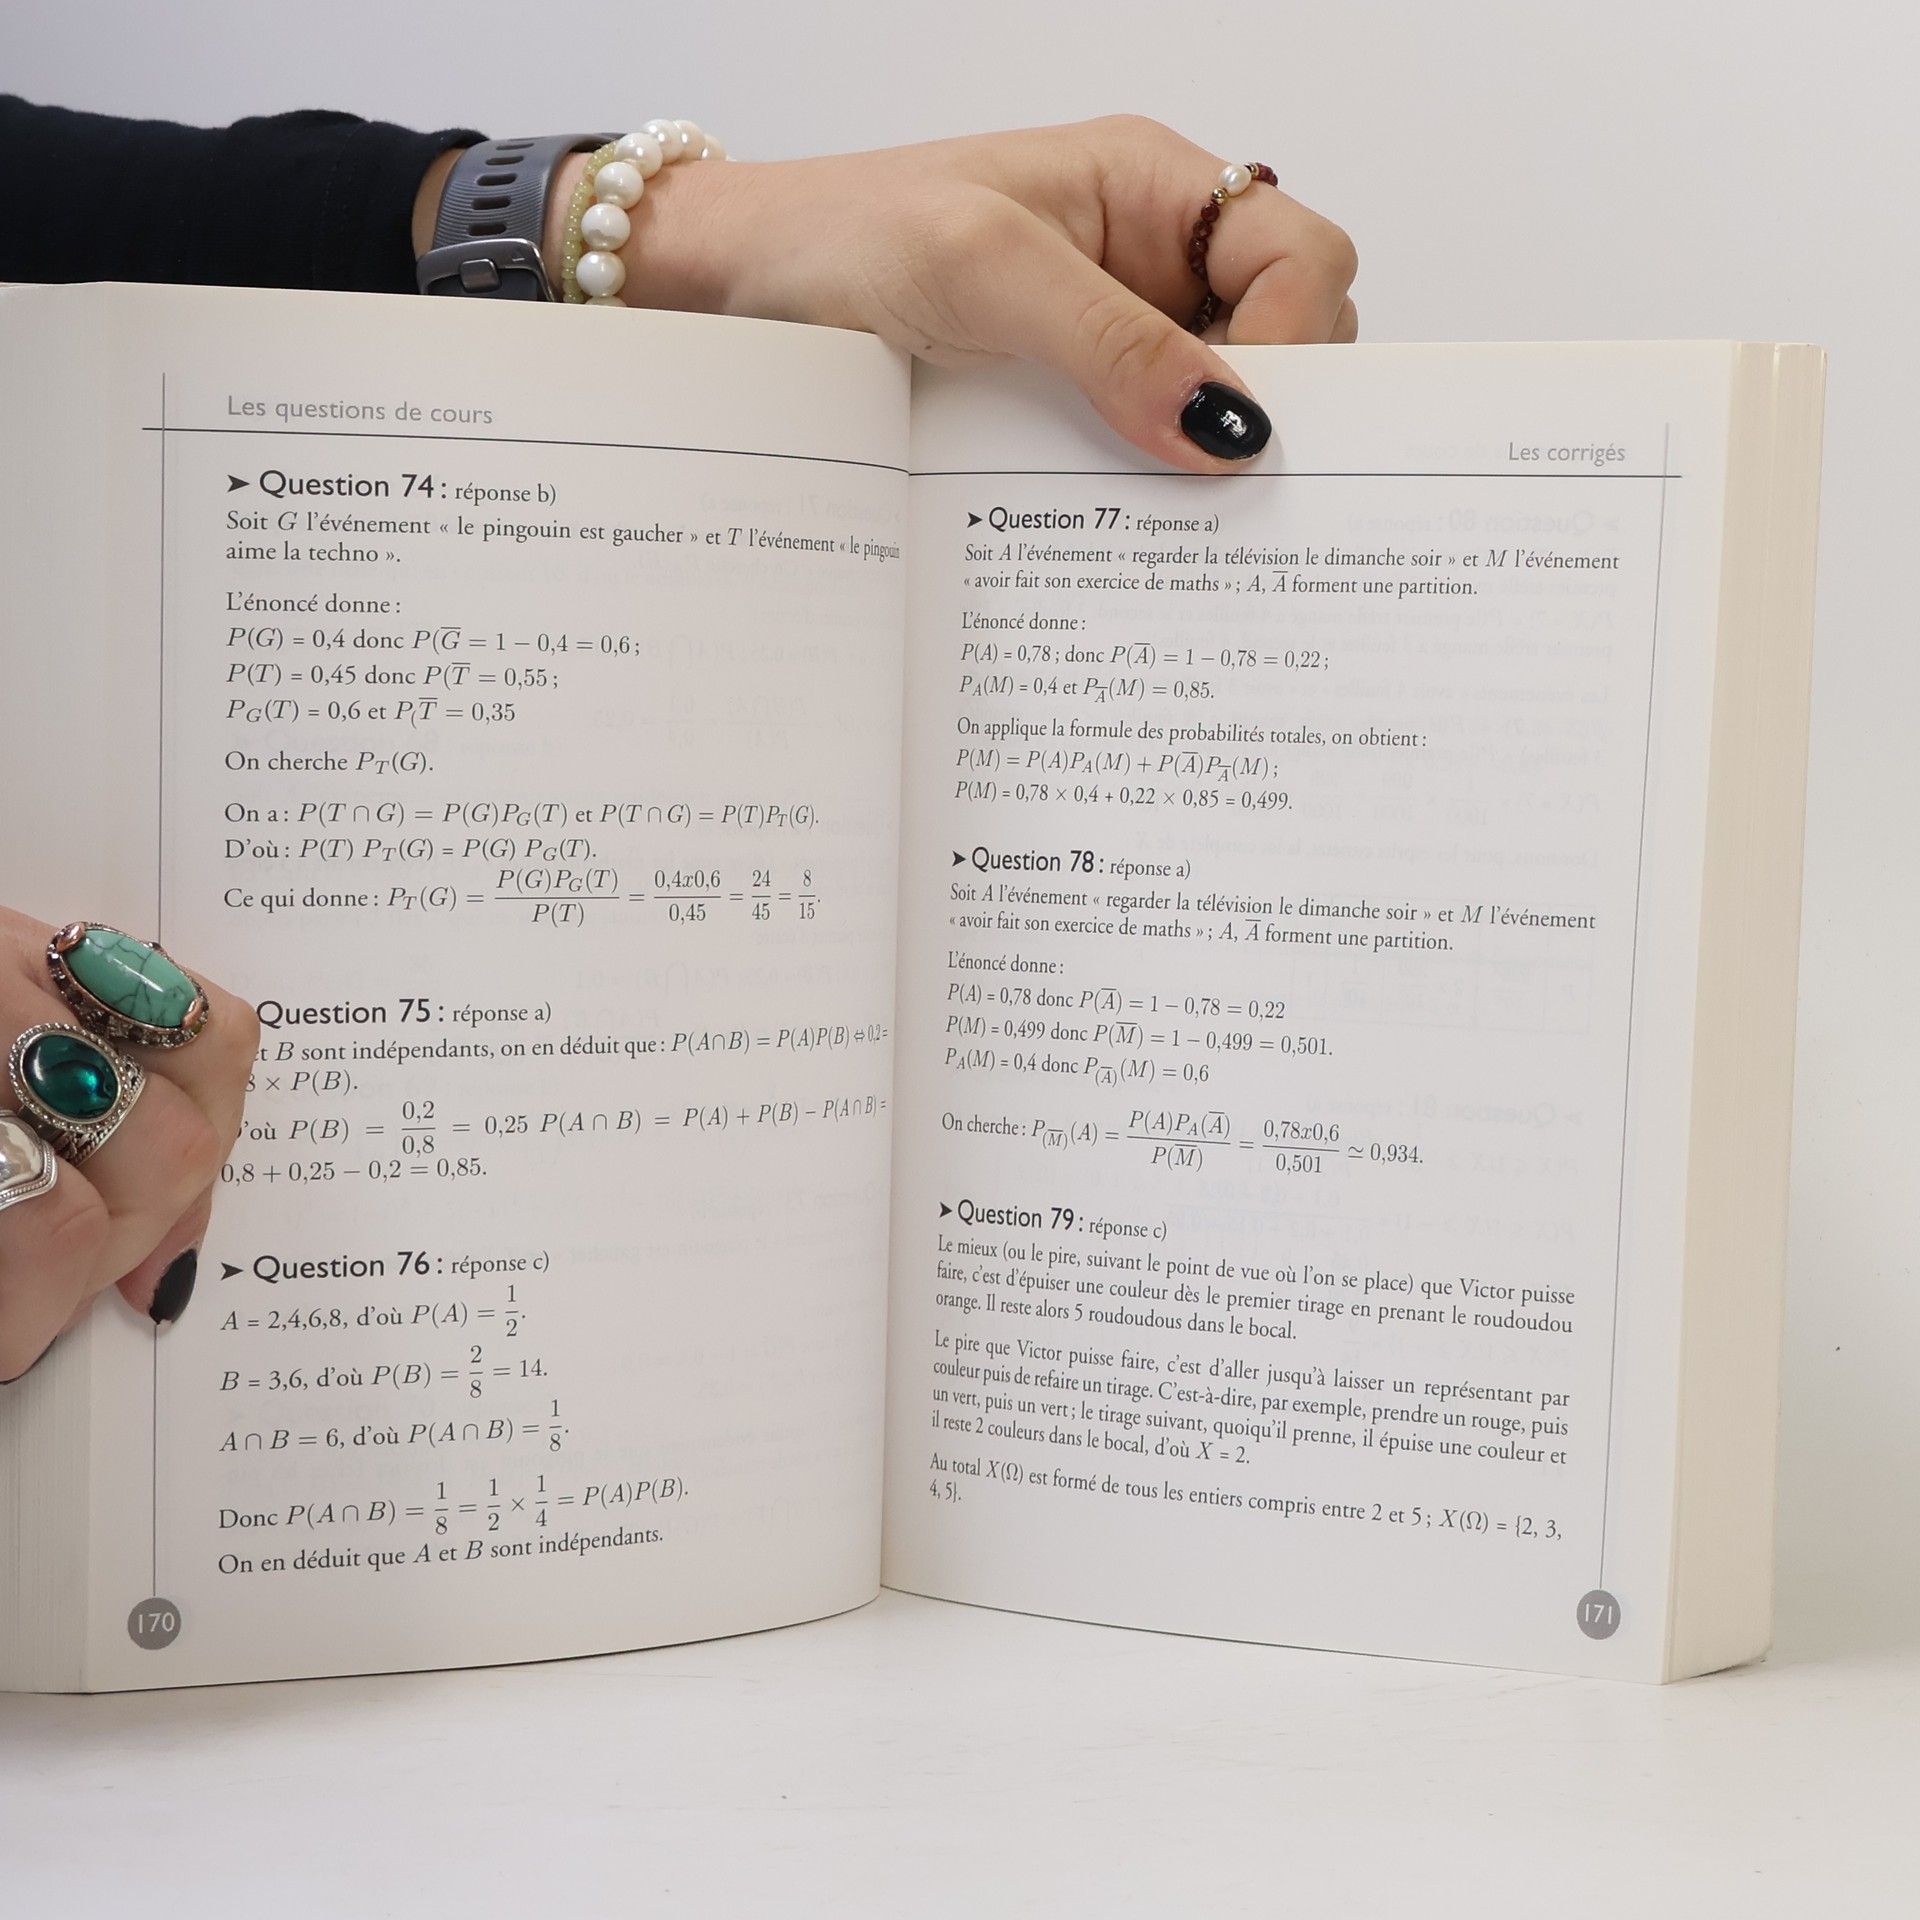 Les questions de cours
➤ Question 74 : réponse b)
Soit G l'événement « le pingouin est gaucher » et T l'événement « le pingouin
aime la techno ».
L'énoncé donne :
P(G) = 0,4 donc P(G̅ = 1 − 0,4 = 0,6 ;
P(T) = 0,45 donc P(T̅ = 0,55 ;
P_G(T) = 0,6 et P(T̅ = 0,35
On cherche P_T(G).
On a : P(T ∩ G) = P(G)P_G(T) et P(T ∩ G) = P(T)P_T(G).
D'où : P(T) P_T(G) = P(G) P_G(T).
Ce qui donne : P_T(G) = P(G)P_G(T) / P(T) = 0,4x0,6 / 0,45 = 24/45 = 8/15.
Question 75 : réponse a)
et B sont indépendants, on en déduit que : P(A∩B) = P(A)P(B) ⇔ 0,2 =
8 × P(B).
'où P(B) = 0,2/0,8 = 0,25 P(A ∩ B) = P(A) + P(B) − P(A ∩ B) =
0,8 + 0,25 − 0,2 = 0,85.
➤ Question 76 : réponse c)
A = 2,4,6,8, d'où P(A) = 1/2.
B = 3,6, d'où P(B) = 2/8 = 14.
A ∩ B = 6, d'où P(A ∩ B) = 1/8.
Donc P(A ∩ B) = 1/8 = 1/2 × 1/4 = P(A)P(B).
On en déduit que A et B sont indépendants.
170
Les corrigés
➤ Question 77 : réponse a)
Soit A l'événement « regarder la télévision le dimanche soir » et M l'événement
« avoir fait son exercice de maths » ; A, A̅ forment une partition.
L'énoncé donne :
P(A) = 0,78 ; donc P(A̅) = 1 − 0,78 = 0,22 ;
P_A(M) = 0,4 et P_A̅(M) = 0,85.
On applique la formule des probabilités totales, on obtient :
P(M) = P(A)P_A(M) + P(A̅)P_A̅(M) ;
P(M) = 0,78 × 0,4 + 0,22 × 0,85 = 0,499.
➤ Question 78 : réponse a)
Soit A l'événement « regarder la télévision le dimanche soir » et M l'événement
« avoir fait son exercice de maths » ; A, A̅ forment une partition.
L'énoncé donne :
P(A) = 0,78 donc P(A̅) = 1 − 0,78 = 0,22
P(M) = 0,499 donc P(M̅) = 1 − 0,499 = 0,501.
P_A(M) = 0,4 donc P_(A̅)(M) = 0,6
On cherche : P_(M̅)(A) = P(A)P_A(A̅) / P(M̅) = 0,78x0,6 / 0,501 ≃ 0,934.
➤ Question 79 : réponse c)
Le mieux (ou le pire, suivant le point de vue où l'on se place) que Victor puisse
faire, c'est d'épuiser une couleur dès le premier tirage en prenant le roudoudou
orange. Il reste alors 5 roudoudous dans le bocal.
Le pire que Victor puisse faire, c'est d'aller jusqu'à laisser un représentant par
couleur puis de refaire un tirage. C'est-à-dire, par exemple, prendre un rouge, puis
un vert, puis un vert ; le tirage suivant, quoiqu'il prenne, il épuise une couleur et
il reste 2 couleurs dans le bocal, d'où X = 2.
Au total X(Ω) est formé de tous les entiers compris entre 2 et 5 ; X(Ω) = {2, 3,
4, 5}.
171